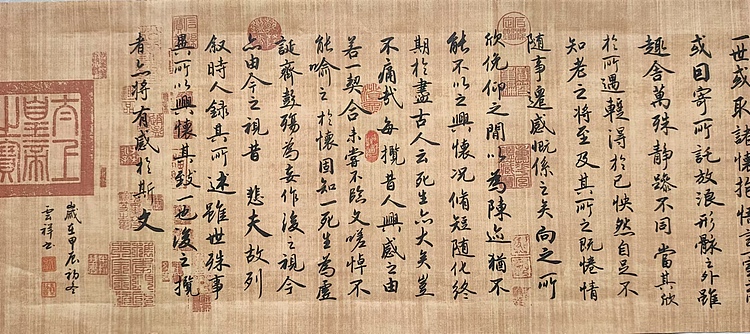 一世或取諸懷抱悟言一室
或因寄所託放浪形骸之外雖
趣舍萬殊靜躁不同當其欣
於所遇輕得於己怏然自足不
知老之將至及其所之既惓情
隨事遷感慨係之矣向之所
欣俛仰之間以為陳迹猶不
能不以之興懷況脩短隨化終
期於盡古人云死生亦大矣豈
不痛哉每攬昔人興感之由
若一契合未嘗不臨文嗟悼不
能喻之於懷固知一死生為虛
誕齊彭殤為妄作後之視今
亦由今之視昔 悲夫故列
敘時人錄其所述雖世殊事
異所以興懷其致一也後之攬
者亦將有感於斯文
太上皇帝之寶
歲在甲辰初冬
雲祥書